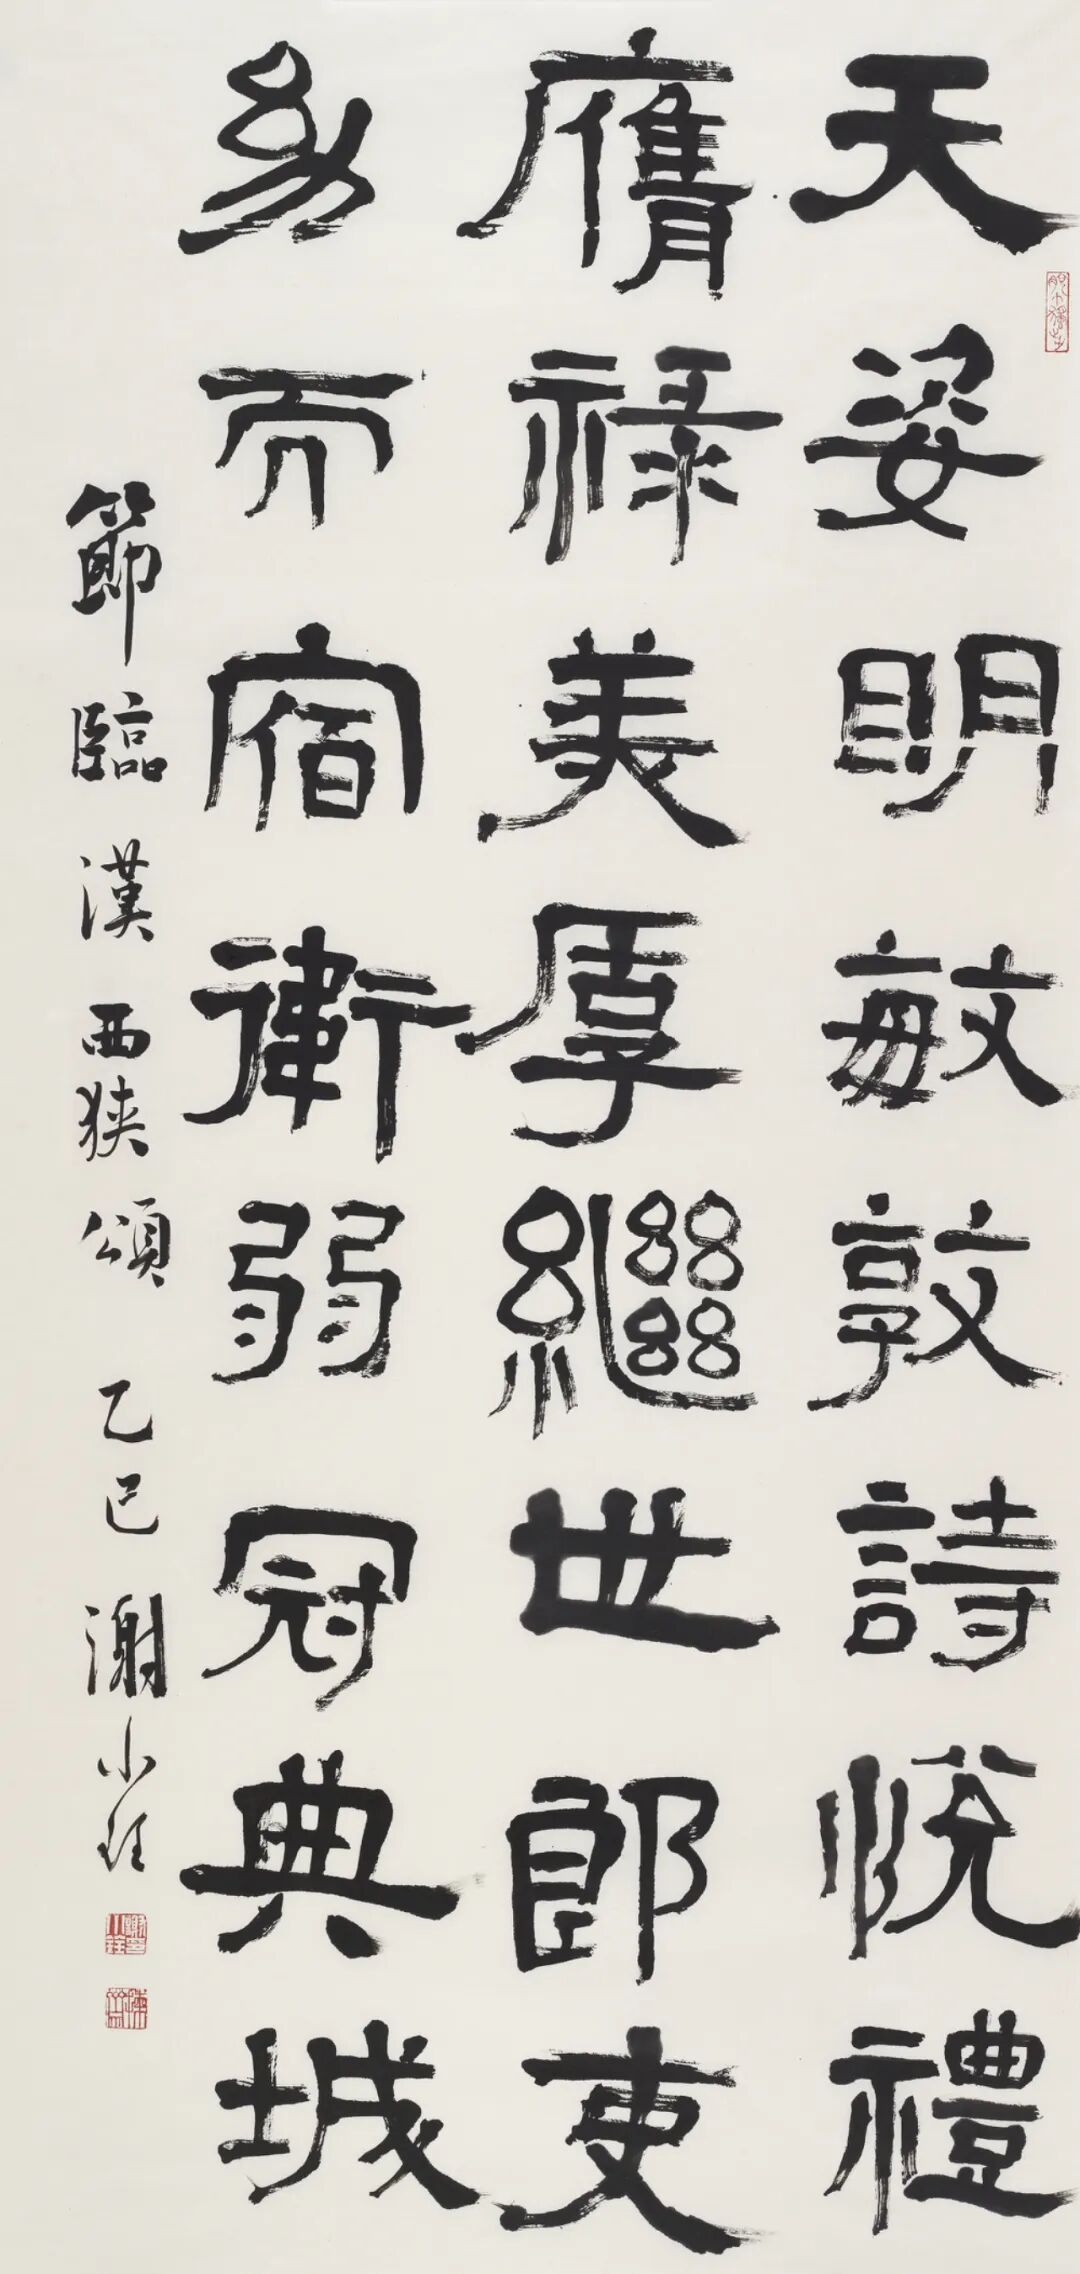 天姿明敏敦詩悅禮
膺祿美厚繼世郎吏
幼而宿衛弱冠典城
節臨漢西狹頌 乙巳 謝小銓